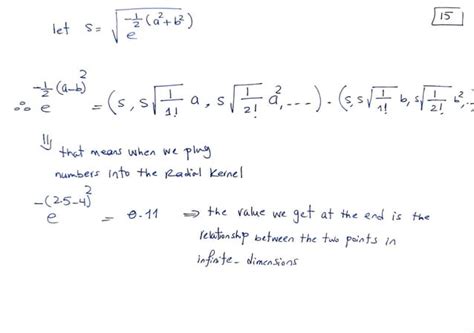 15
let s = √(e^(-1/2 (a²+b²)))
∴ e^(-1/2 (a-b)²) = (s, s√(1/1!) a, s√(1/2!) a², ....) . (s, s√(1/1!) b, s√(1/2!) b², ..
⇓ that means when we plug
numbers into the Radial Kernel
e^(-(2.5-4)²) = 0.11 ⇒ the value we get at the end is the
relationship between the two points in
infinite-dimensions